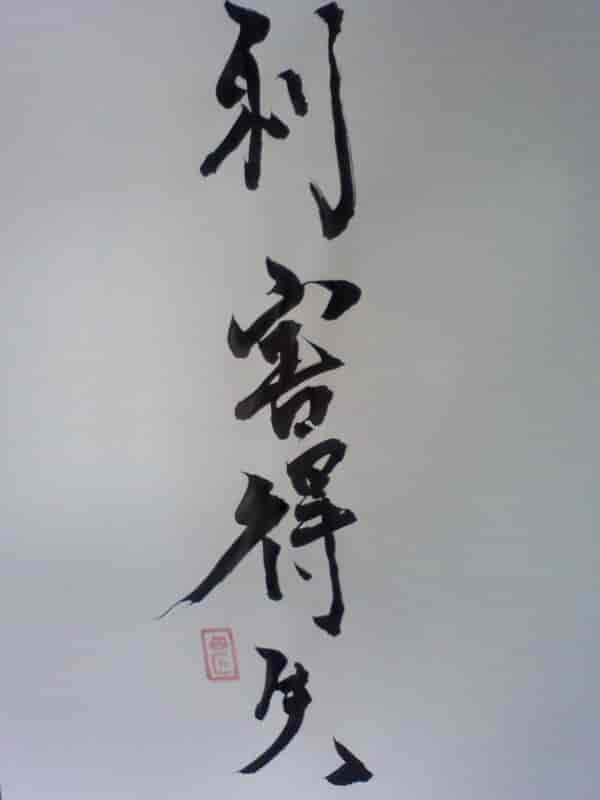 利害得失